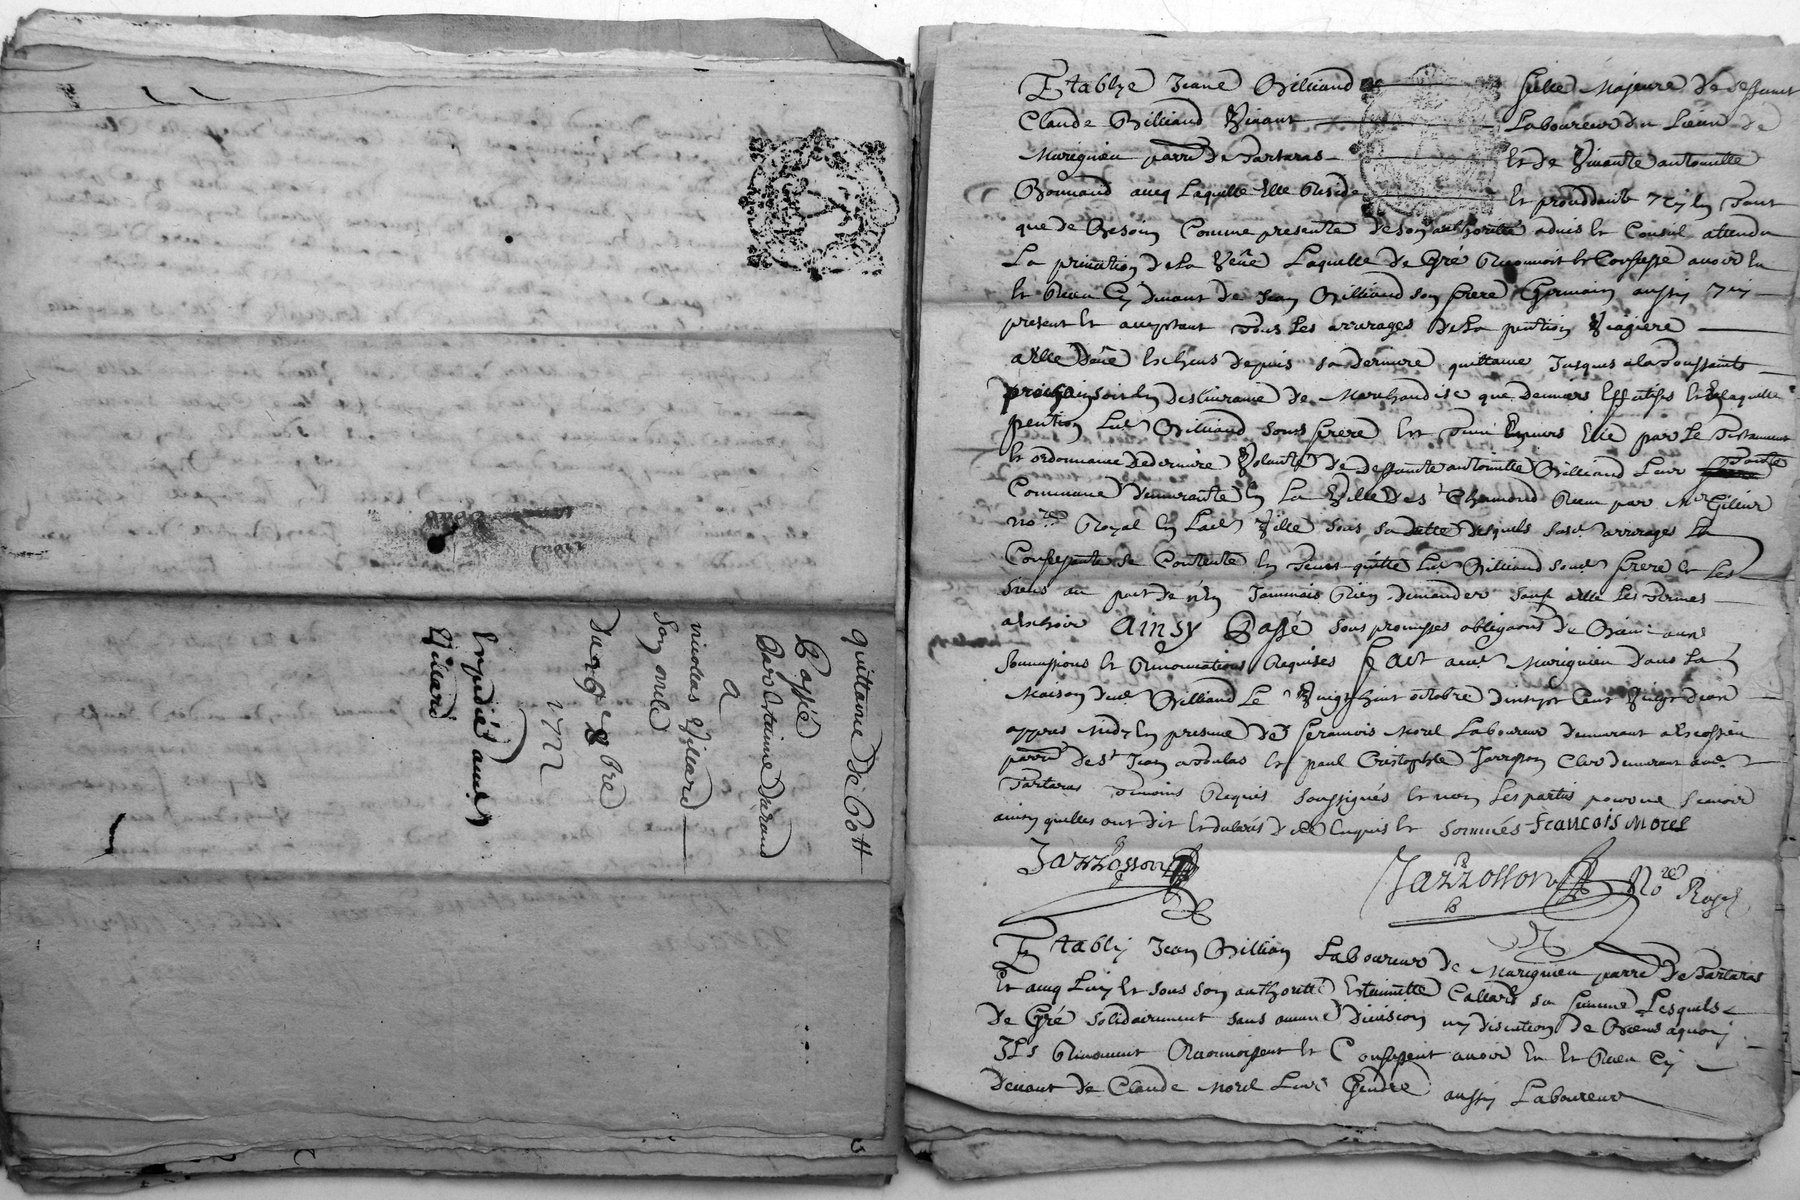 quittance de 60 ₶
Passé
Par Estienne Durand
a
nicolas Villiard
Son oncle
du 9e 8bre
1722
Expédié aud
Villiard
Establye Jeane Billiand fille Majeure de deffunct
Claude Billiand Vivant Laboureur du Lieu de
Marignieu parre de Tartaras Et de Vivante antoinette
Bonnand aveq Laquelle Elle Reside Et proceddante Icy En tant
que de Besoin Comme presente de Son authoritté advis Et Conseil attendu
La privation de La Veüe Laquelle de Gré Reconnoit Et Confesse avoir Eu
Et Receu Cy devant de Jean Billiand Son frere Germain aussy Icy
present Et acceptant tous Les arrerages de La pention Viagiere
a Elle deüe Escheus depuis Sa derniere quittance Jusques a la toussaints
prochain soit En deslivrance de Marchandise que deniers Effectifs Et de laquelle
pention Led Billiand Sond frere Est tenu Envers Elle par Le Testament
Et ordonnance de derniere Volonté de deffuncte antoinette Billiand Leur tante
Commune demeurante En La Ville de St Chamond Receu par Me
nore Royal En Lad Ville Sous Sa datte desquels Susd arrerages La
Confessante Se Contente En Tient quitte Led Billiand Sond frere Et Les
Siens au pact de n'En Jammais Rien demander Sauf a Elle Les termes
a Eschoir Ainsy Passé Sous promisses obligaons de Biens aux
Soumissions Et Renonciations Requises Fait aud Marignieu dans La
Maison dud Billiand Le Vingt huit octobre mil Sept Cent Vingt deux
appres Midy En presence de Sr francois Morel Laboureur demeurant a
parre de St Jean a Toulas Et paul Cristophle Clerc demeurant aud
Tartaras temoins Requis Soussignés Et non Les parties pour ne Scavoir
ainsy quelles ont dit Et declaré de ce Enquis Et Sommés francois morel
Jazzosson
Jazzosson Nore Royal
Establi Jean Billian Laboureur de Marignieu parre de Tartaras
Et aveq Luy Et Sous Son authoritté Estiennette Sa femme Lesquels
de Gré Solidairement Sans aucune division ny discution de Biens a quoy
Ils Renoncent Reconnoissent Et Confessent avoir Eu Et Receu Cy
devant de Claude Morel Leur Gendre aussy Laboureur